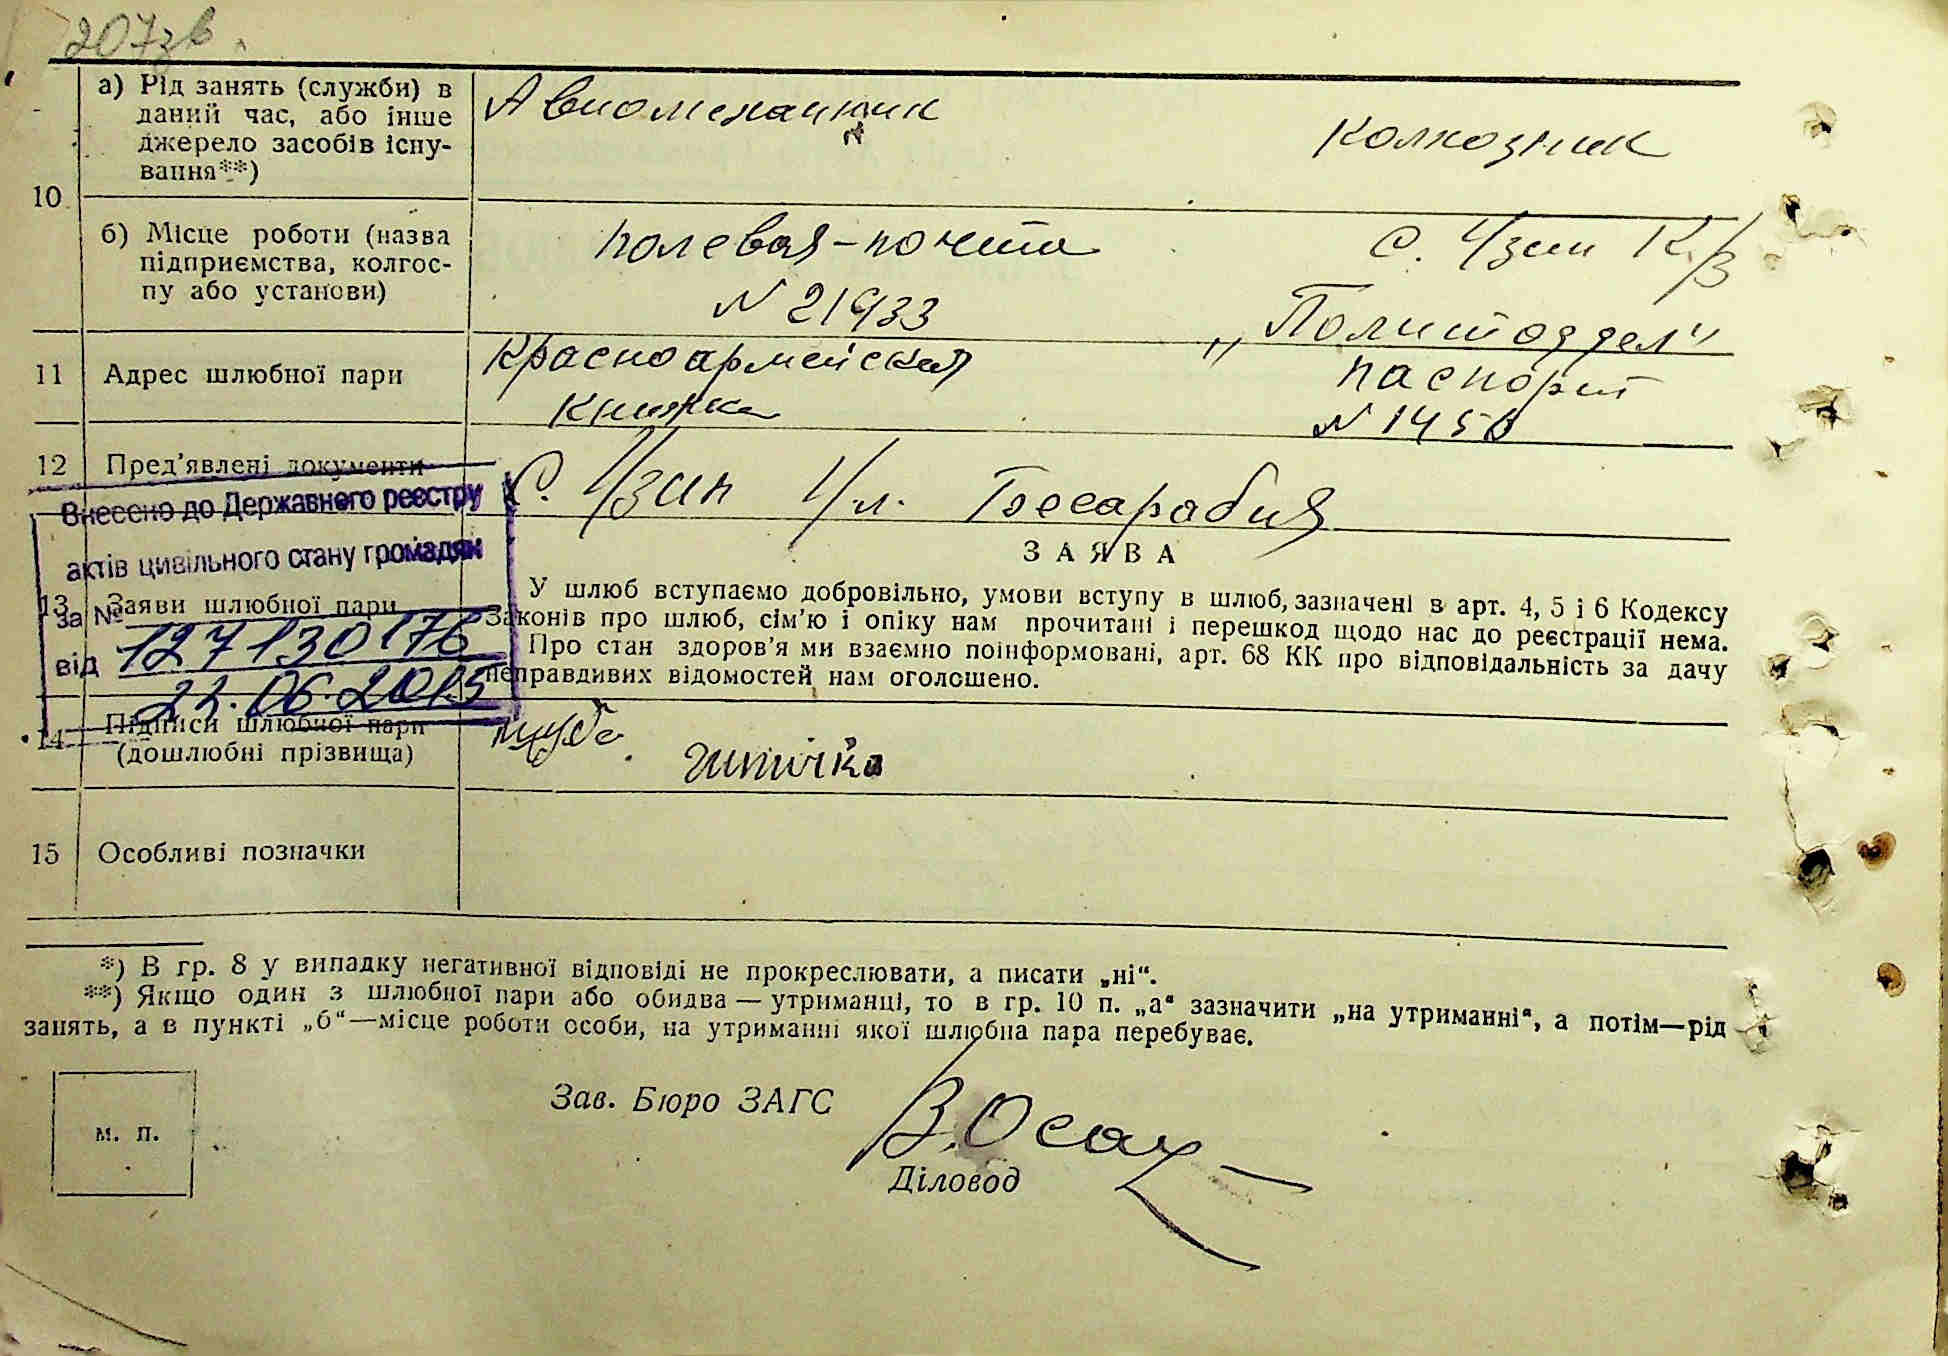 207зв
а) Рід занять (служби) в
даний час, або інше
джерело засобів існу-
вання**)
Авиомеханик
колхозник
10
б) Місце роботи (назва
підприємства, колгос-
пу або установи)
полевая-почта
№ 21933
с. Узин К/з
"Политоддел"
11 Адрес шлюбної пари
Красноармейская
книжка
паспорт
№ 1456
12 Пред'явлені документи
с. Узин Ул. Бесарабия
Внесено до Державного реєстру
актів цивільного стану громадян
за № 127130176
від 22.06.2015
13 Заяви шлюбної пари
ЗАЯВА
У шлюб вступаємо добровільно, умови вступу в шлюб, зазначені в арт. 4, 5 і 6 Кодексу
Законів про шлюб, сім'ю і опіку нам прочитані і перешкод щодо нас до реєстрації нема.
Про стан здоров'я ми взаємно поінформовані, арт. 68 КК про відповідальність за дачу
неправдивих відомостей нам оголошено.
14 Підписи шлюбної пари
(дошлюбні прізвища)
15 Особливі позначки
*) В гр. 8 у випадку негативної відповіді не прокреслювати, а писати „ні“.
**) Якщо один з шлюбної пари або обидва — утриманці, то в гр. 10 п. „а“ зазначити „на утриманні“, а потім—рід
занять, а в пункті „б“—місце роботи особи, на утриманні якої шлюбна пара перебуває.
Зав. Бюро ЗАГС
м. п.
Діловод